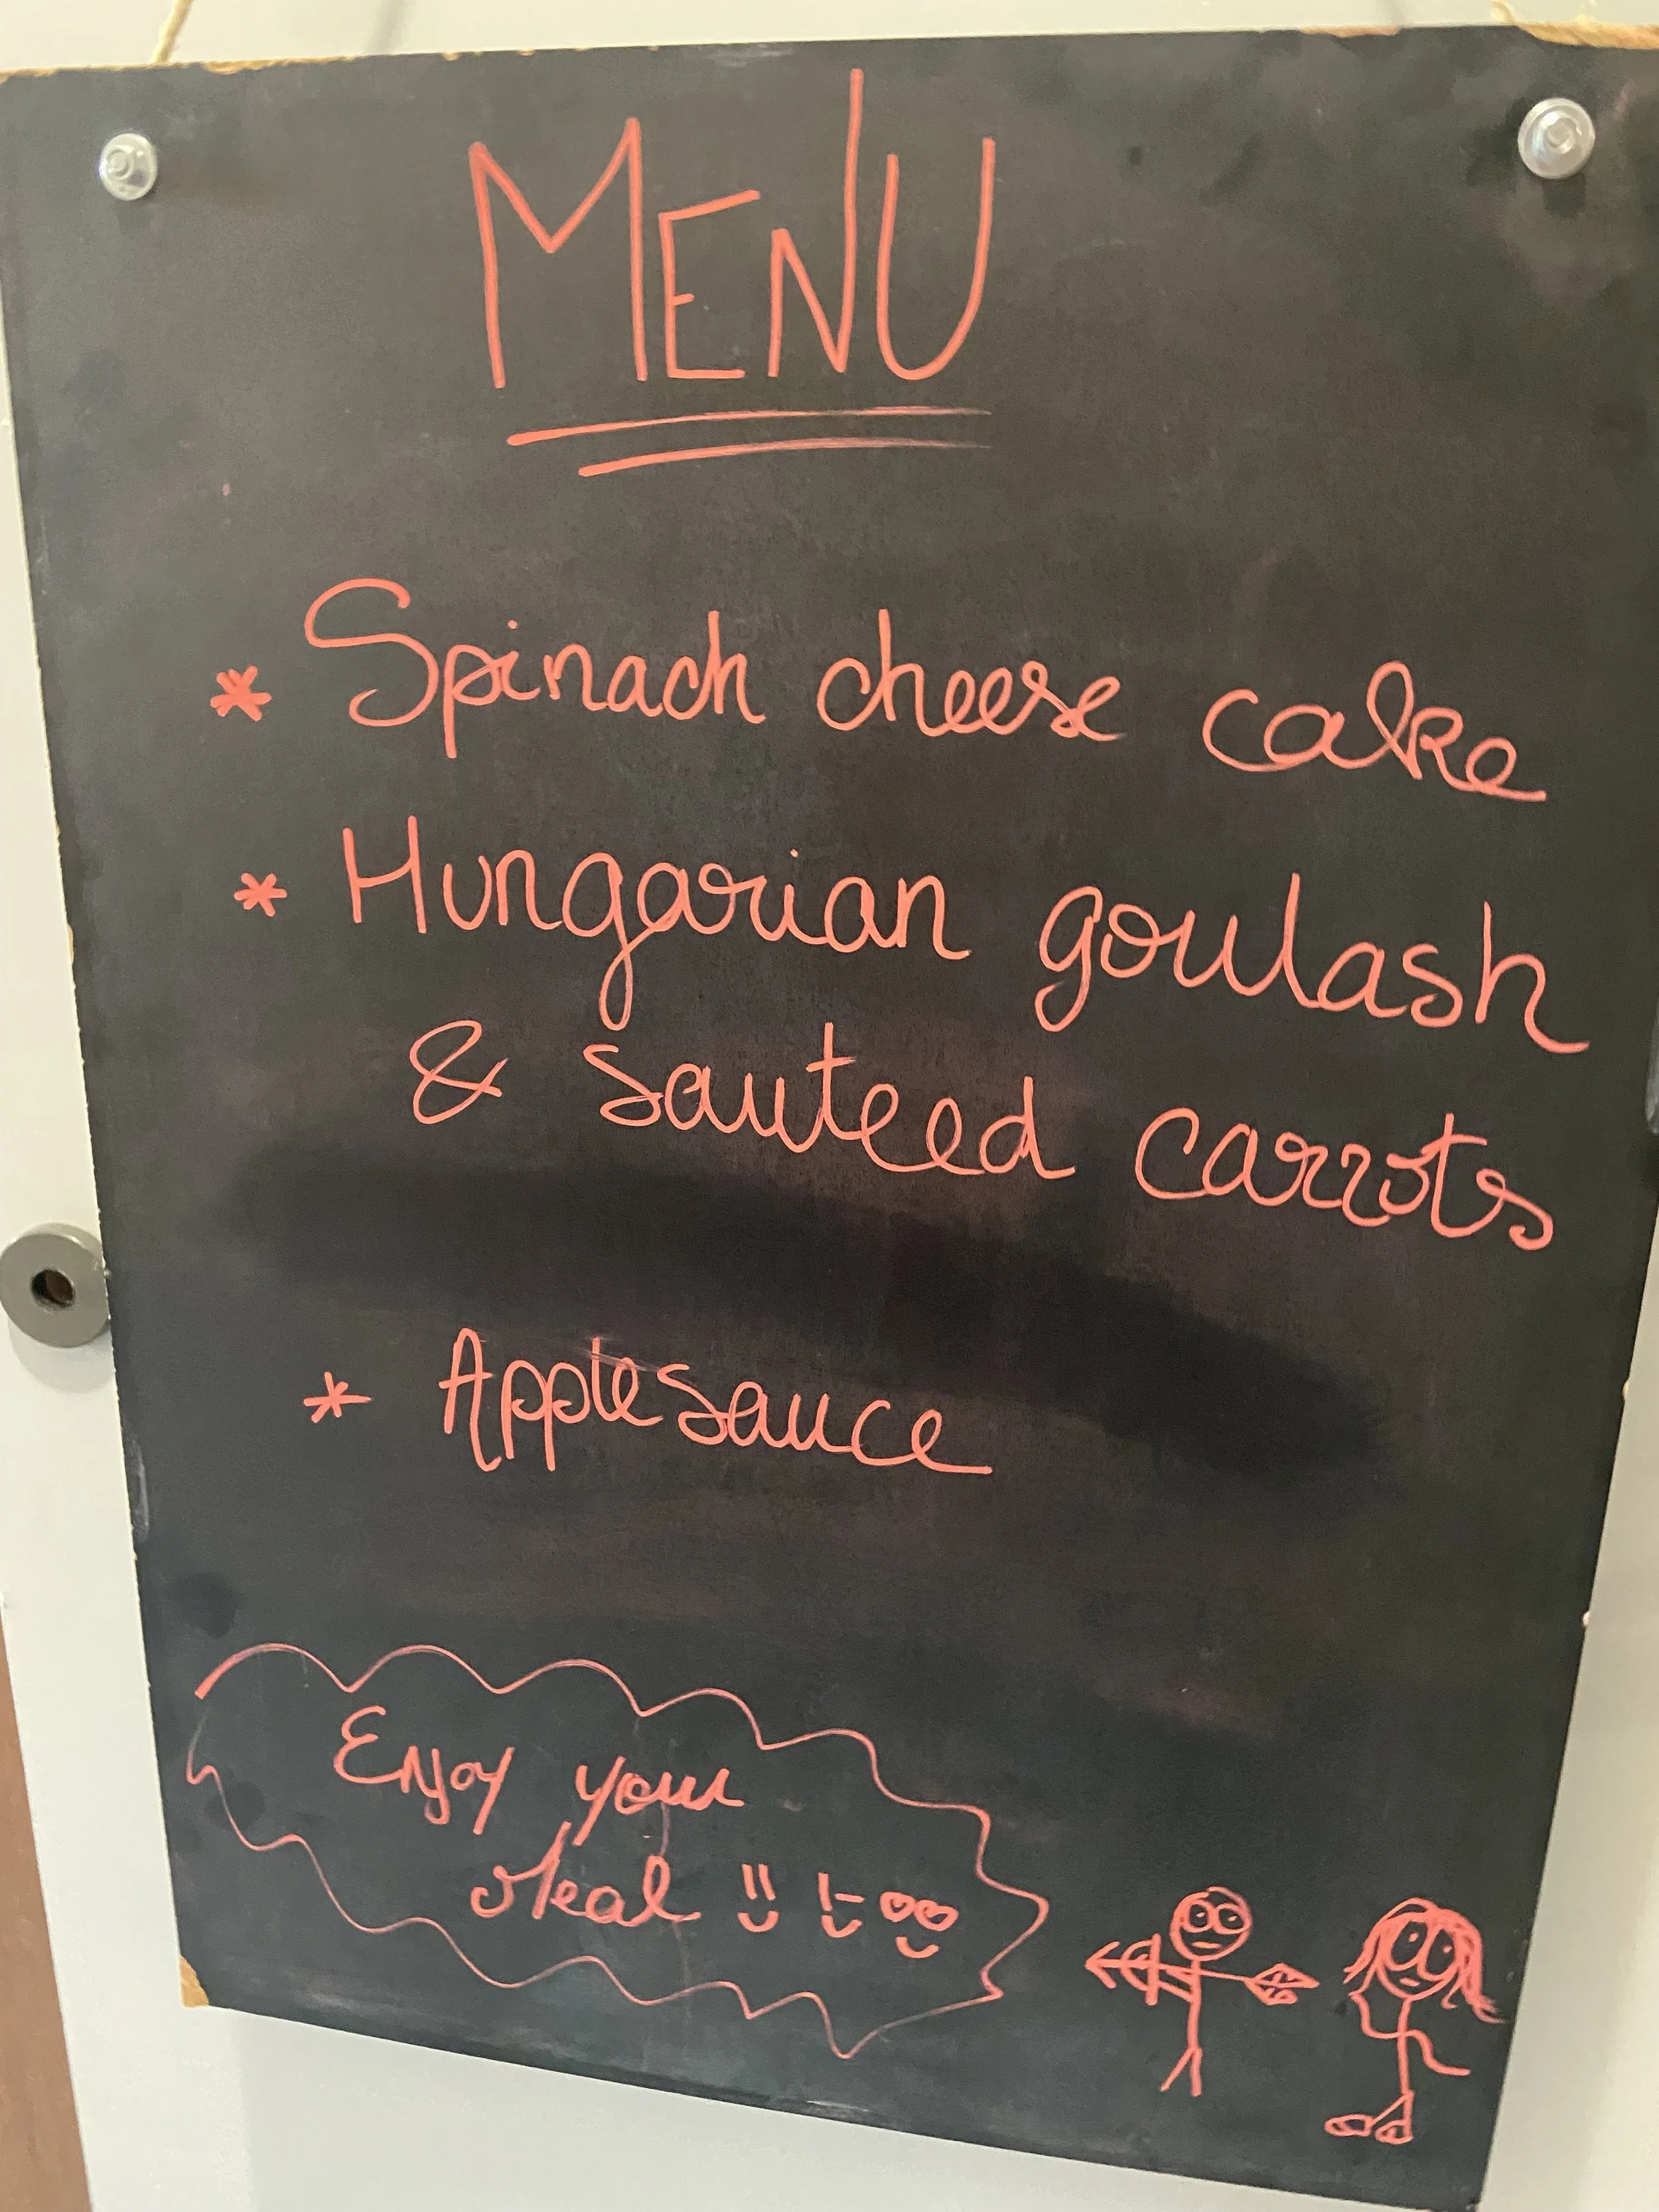 MENU
* Spinach cheese cake
* Hungarian goulash
& sauteed carrots
* Applesauce
Enjoy your
Meal